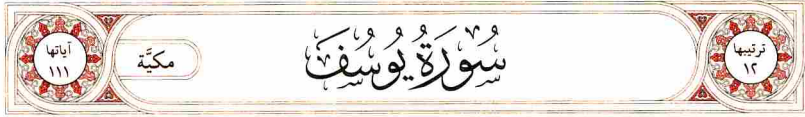 ترتيبها
١٢
سُورَةُ يُوسُفَ
مكيَّة
آياتها
١١١